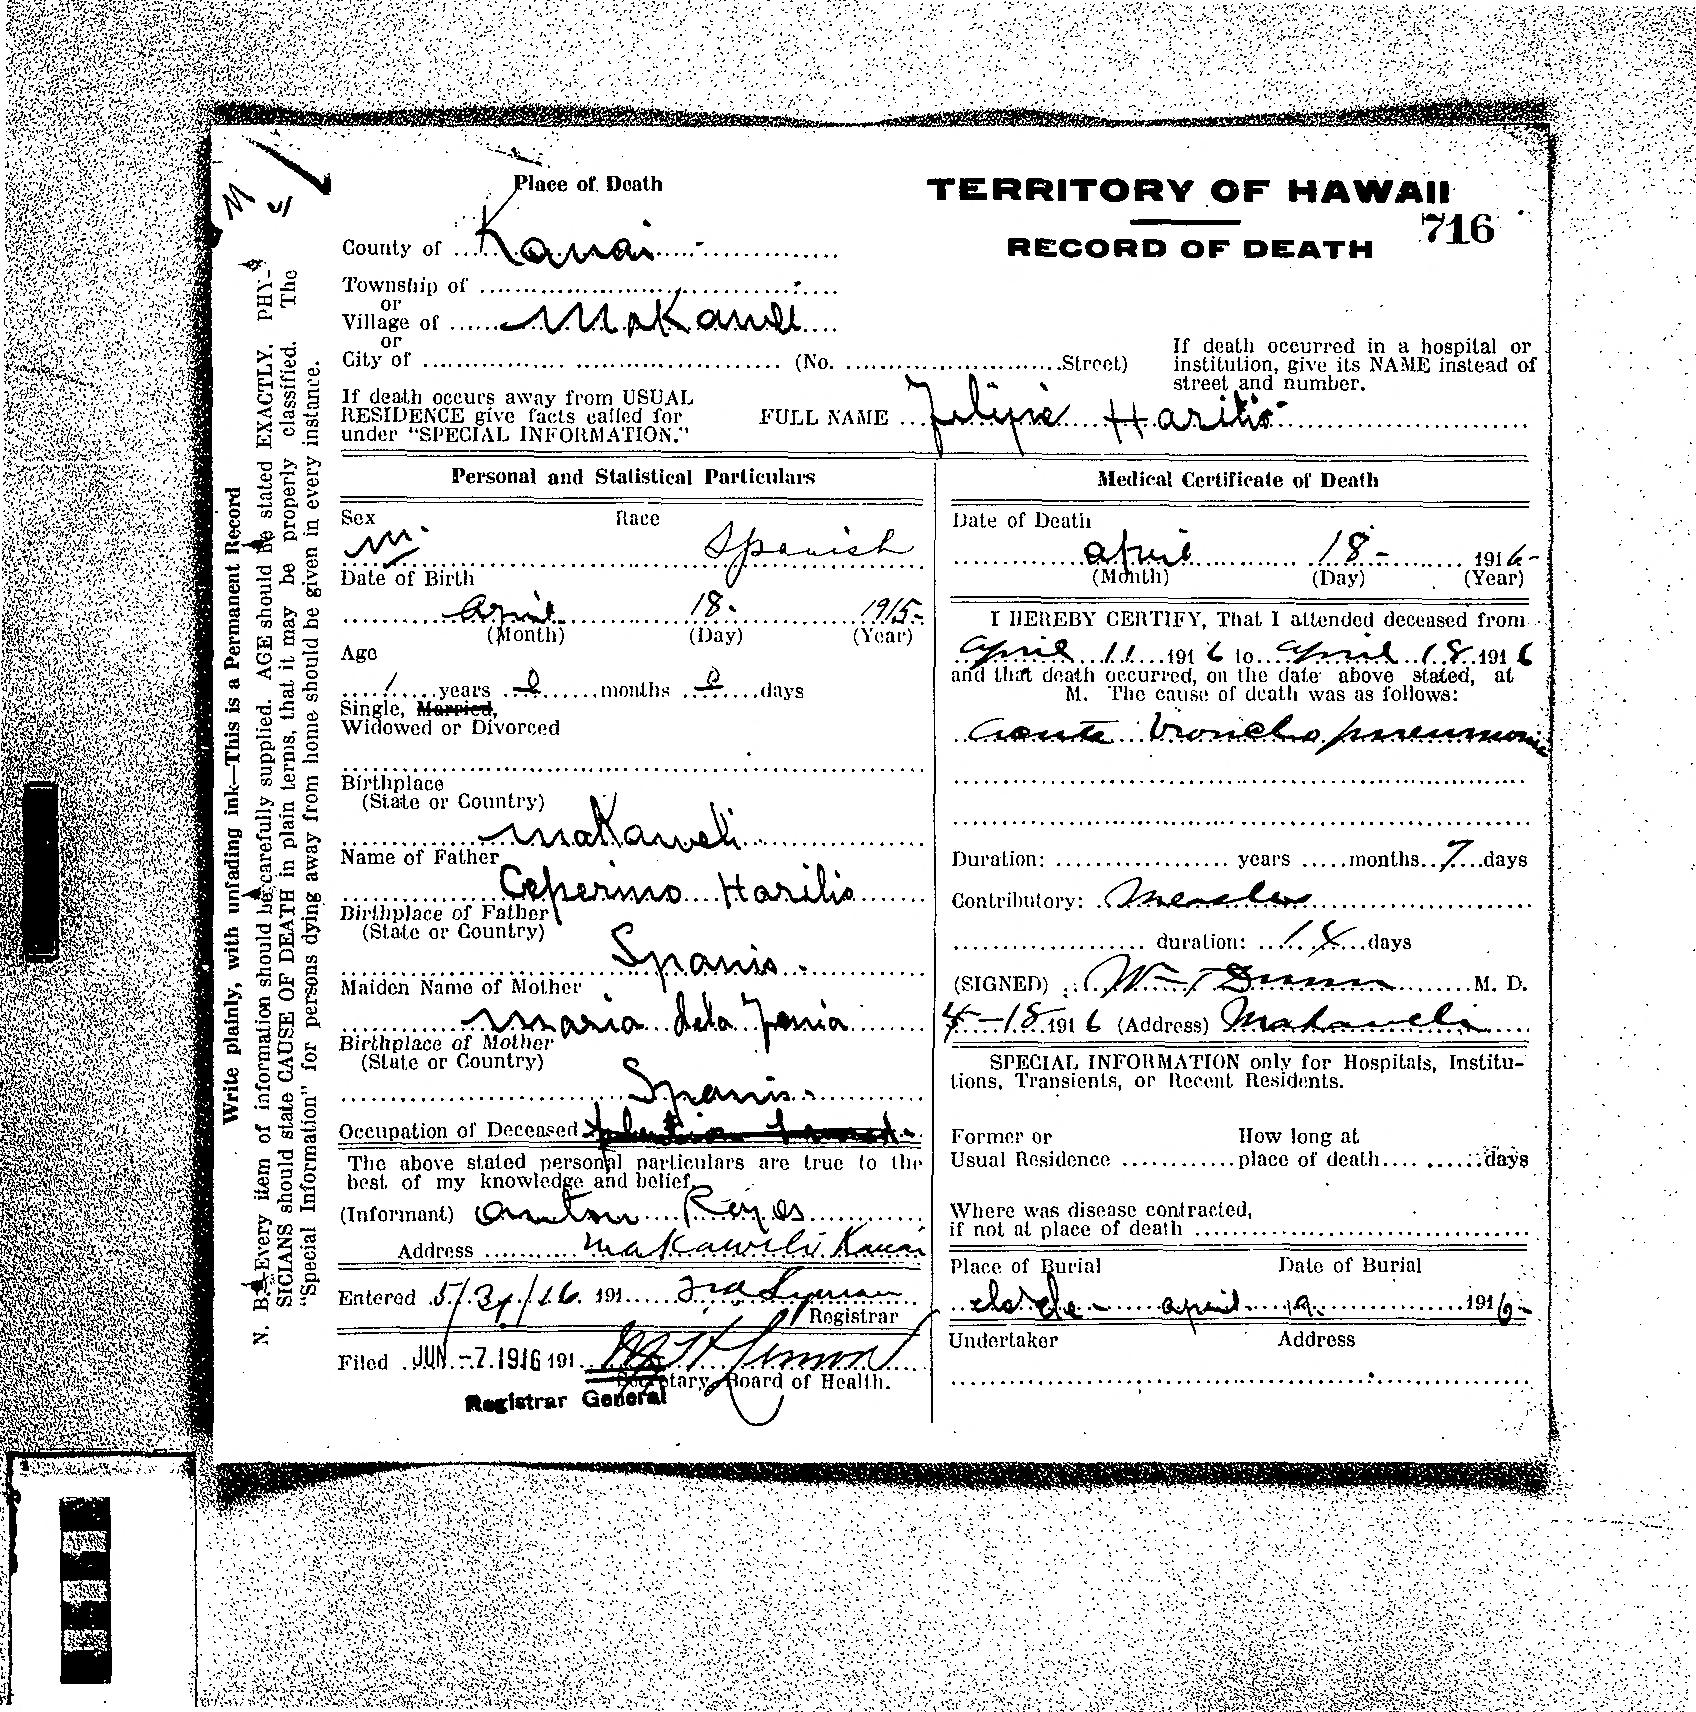 Place of Death
TERRITORY OF HAWAII
RECORD OF DEATH
716
County of Kauai
Township of
or
Village of Makaweli
or
City of (No. Street)
If death occurred in a hospital or
institution, give its NAME instead of
street and number.
If death occurs away from USUAL
RESIDENCE give facts called for
under "SPECIAL INFORMATION."
FULL NAME Felipie Harilio
Write plainly, with unfading ink—This is a Permanent Record
N. B.—Every item of information should be carefully supplied. AGE should be stated EXACTLY. PHY-
SICIANS should state CAUSE OF DEATH in plain terms, that it may be properly classified. The
"Special Information" for persons dying away from home should be given in every instance.
Personal and Statistical Particulars
Sex Race
M. Spanish
Date of Birth
April 18- 1915-
(Month) (Day) (Year)
Age
1 years 0 months 0 days
Single, Married,
Widowed or Divorced
Birthplace
(State or Country)
Makaweli
Name of Father
Ceperino Harilio
Birthplace of Father
(State or Country)
Spanis
Maiden Name of Mother
Maria dela
Birthplace of Mother
(State or Country)
Spanis
Occupation of Deceased
The above stated personal particulars are true to the
best of my knowledge and belief.
(Informant) Anton Reyes
Address Makaweli Kauai
Entered 5/31/16 191
Registrar
Filed JUN -7 1916 191
Secretary, Board of Health.
Registrar General
Medical Certificate of Death
Date of Death
April 18- 1916-
(Month) (Day) (Year)
I HEREBY CERTIFY, That I attended deceased from
April 11 1916 to April 18 1916
and that death occurred, on the date above stated, at
M. The cause of death was as follows:
Acute broncho pneumonia
Duration: years months 7 days
Contributory: Measles
duration: 14 days
(SIGNED) W T Dunn M. D.
4-18 1916 (Address) Makaweli
SPECIAL INFORMATION only for Hospitals, Institu-
tions, Transients, or Recent Residents.
Former or How long at
Usual Residence place of death days
Where was disease contracted,
if not at place of death
Place of Burial Date of Burial
April 1916-
Undertaker Address